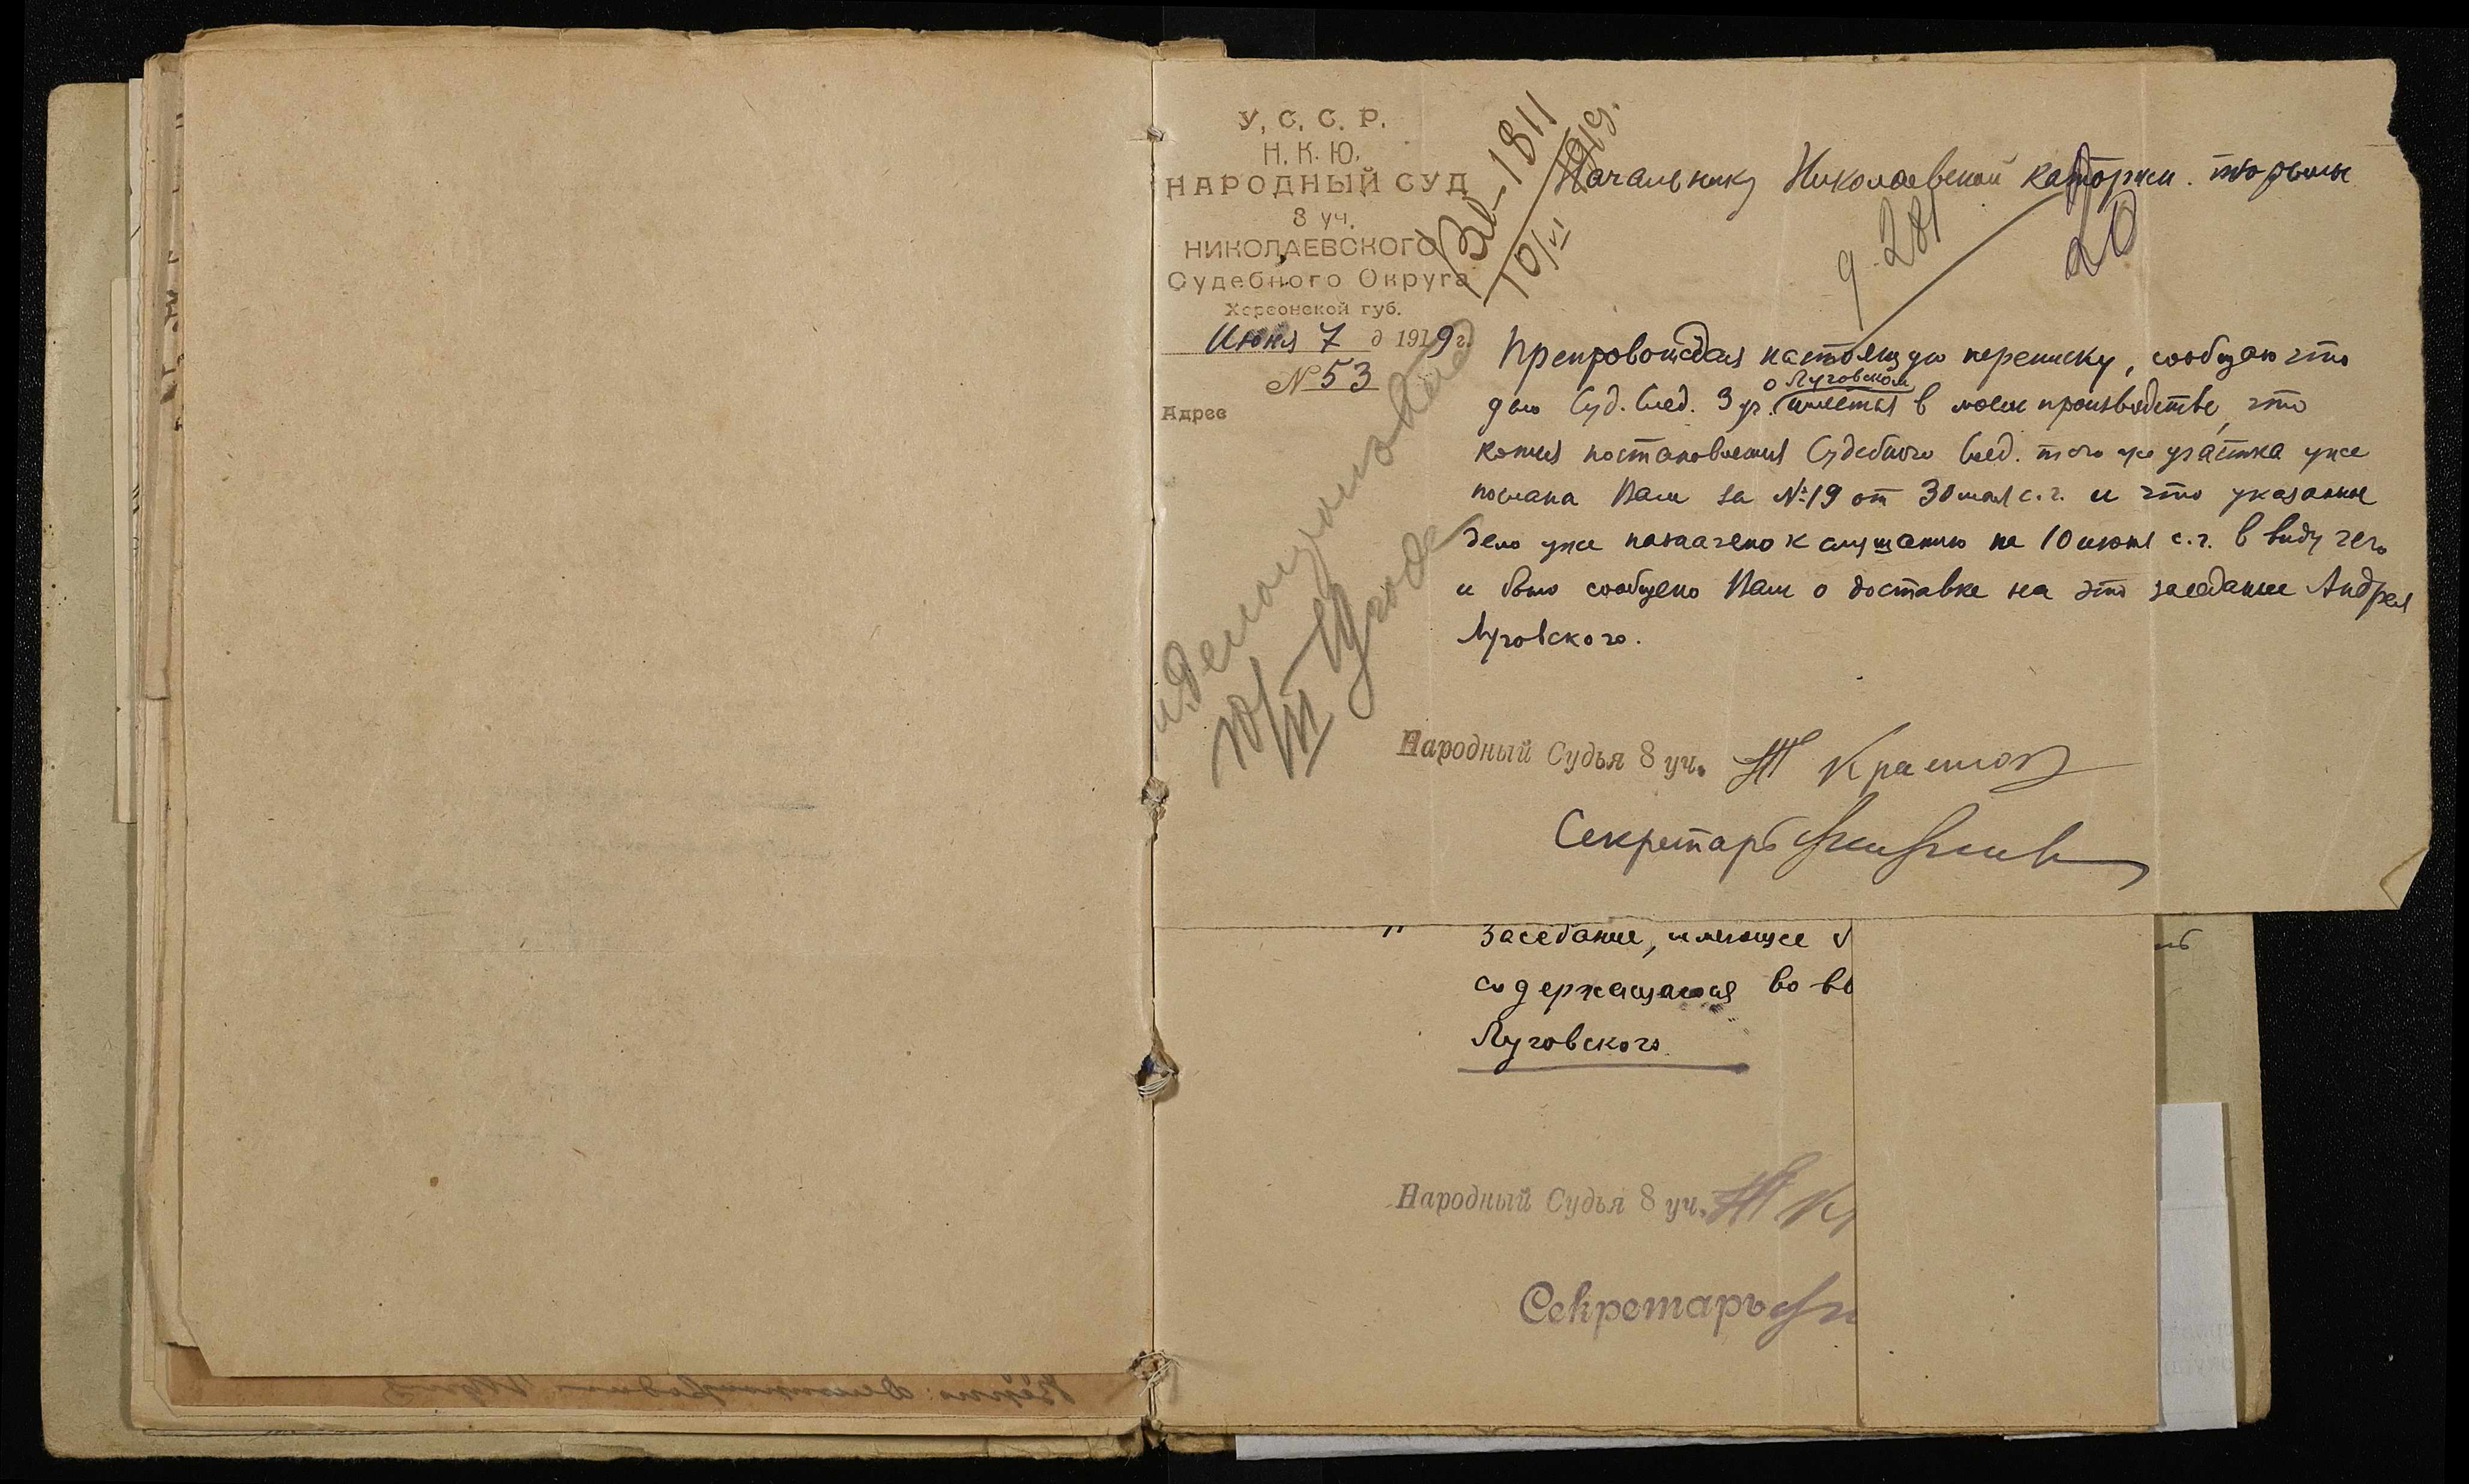 У. С. С. Р.
Н. К. Ю.
НАРОДНЫЙ СУД
8 уч.
НИКОЛАЕВСКОГО
Судебного Округа
Херсонской губ.
Июня 7 д 1919 г.
№ 53
Адрес
Вх-1811
10/VI 1919.
Начальнику Николаевской каторжн. тюрьмы
д. 281
20
Препровождая настоящую переписку, сообщаю что
о Луговском
дело Суд. След. 3 уч. имеется в моем производстве, что
копия постановления Судебного След. того же участка уже
послана Вам за №19 от 30 мая с.г. и что указанное
дело уже назначено к слушанию на 10 июня с.г. в виду чего
и было сообщено Вам о доставке на это заседание Андрея
Луговского.
к делопроизводству
10/VI
Народный Судья 8 уч.
Секретарь
Заседание, имеющее
содержащагося во вв
Луговского
Народный Судья 8 уч.
Секретарь